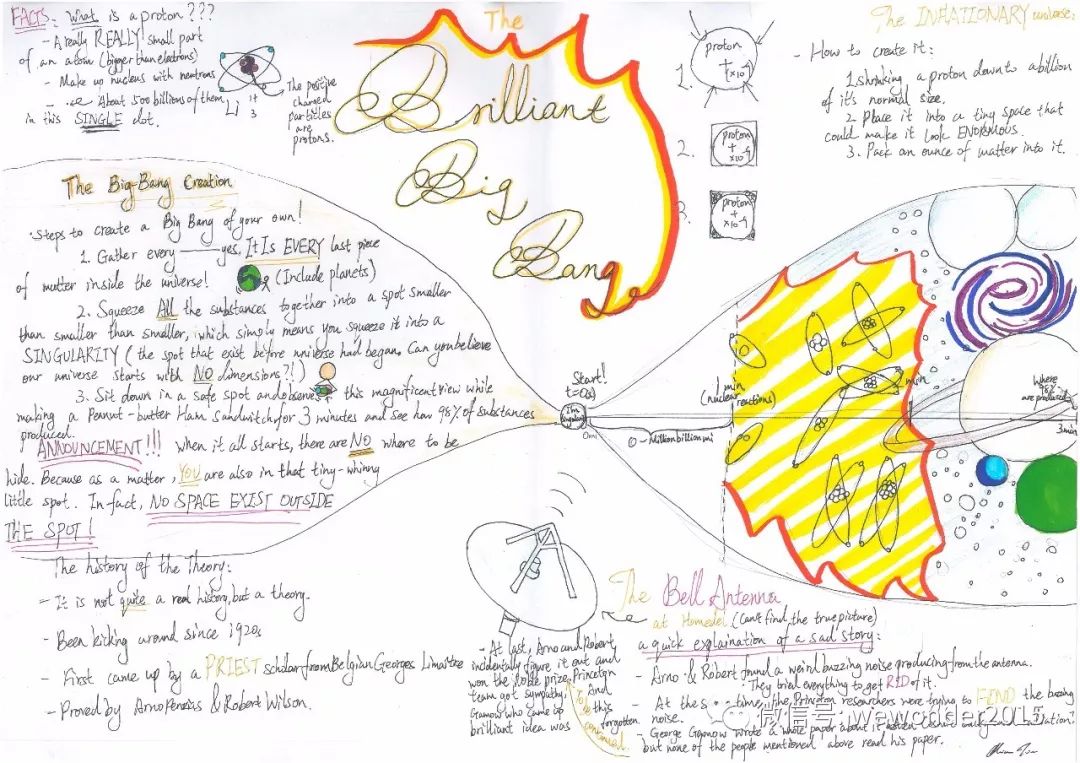 FACTS: What is a proton ???
- A really REALLY small part
of an atom (bigger than electrons)
- Make up nucleus with neutrons
- About 500 billions of them
in this SINGLE dot.
Li
1+
3
The positive
charged
particles
are
protons.
The
Brilliant
Big
Bang
1.
proton
÷
×10⁻⁹
2.
proton
÷
×10⁻⁹
3.
proton
÷
×10⁻⁹
The INFLATIONARY universe:
- How to create it:
1. shrinking a proton down to a billion
of it's normal size.
2. Place it into a tiny space that
could make it look ENORMOUS.
3. Pack an ounce of matter into it.
The Big-Bang Creation
Steps to create a Big Bang of your own!
1. Gather every —— yes, It Is EVERY last piece
of mutter inside the universe! (Include planets)
2. Squeeze All the substances together into a spot smaller
than smaller than smaller, which simply means you squeeze it into a
SINGULARITY (the spot that exist before universe had began. Can you believe
our universe starts with NO dimensions?!)
3. Sit down in a safe spot and this magnificent view while
making a Peanut-butter Ham Sandwitch, for 3 minutes and see how 98% of substances
produced.
ANNOUNCEMENT!!! When it all starts, there are NO where to be
hide. Because as a matter, YOU are also in that tiny-whinny
little spot. In fact, NO SPACE EXIST OUTSIDE
THE SPOT!
Start!
t=0(s)
0mi
0 - Millionbillion mi
1min
(nuclear
reactions)
2min
Where
98%
are produced
3min
The history of the Theory:
- It is not quite a real history, but a theory.
- Been kicking around since 1920s
- First came up by a PRIEST scholar from Belgian Georges Limaitre
- Proved by Arno Penzias & Robert Wilson.
- At last, Arno and Robert
incidentally figure it out and
won the noble prize, Princeton
team got sympathy. And
Gamow who came up this
brilliant idea was forgotten.
To be continued
The Bell Antenna
at Homedel (Can't find the true picture)
a quick explaination of a sad story:
- Arno & Robert found a weird buzzing noise producing from the antenna.
They tried everything to get RID of it.
- At the time, the Princeton researchers were trying to FIND the buzzing
noise.
- George Gamow wrote a whole paper about it
but none of the people mentioned above read his paper.
微信号: wewonder2015